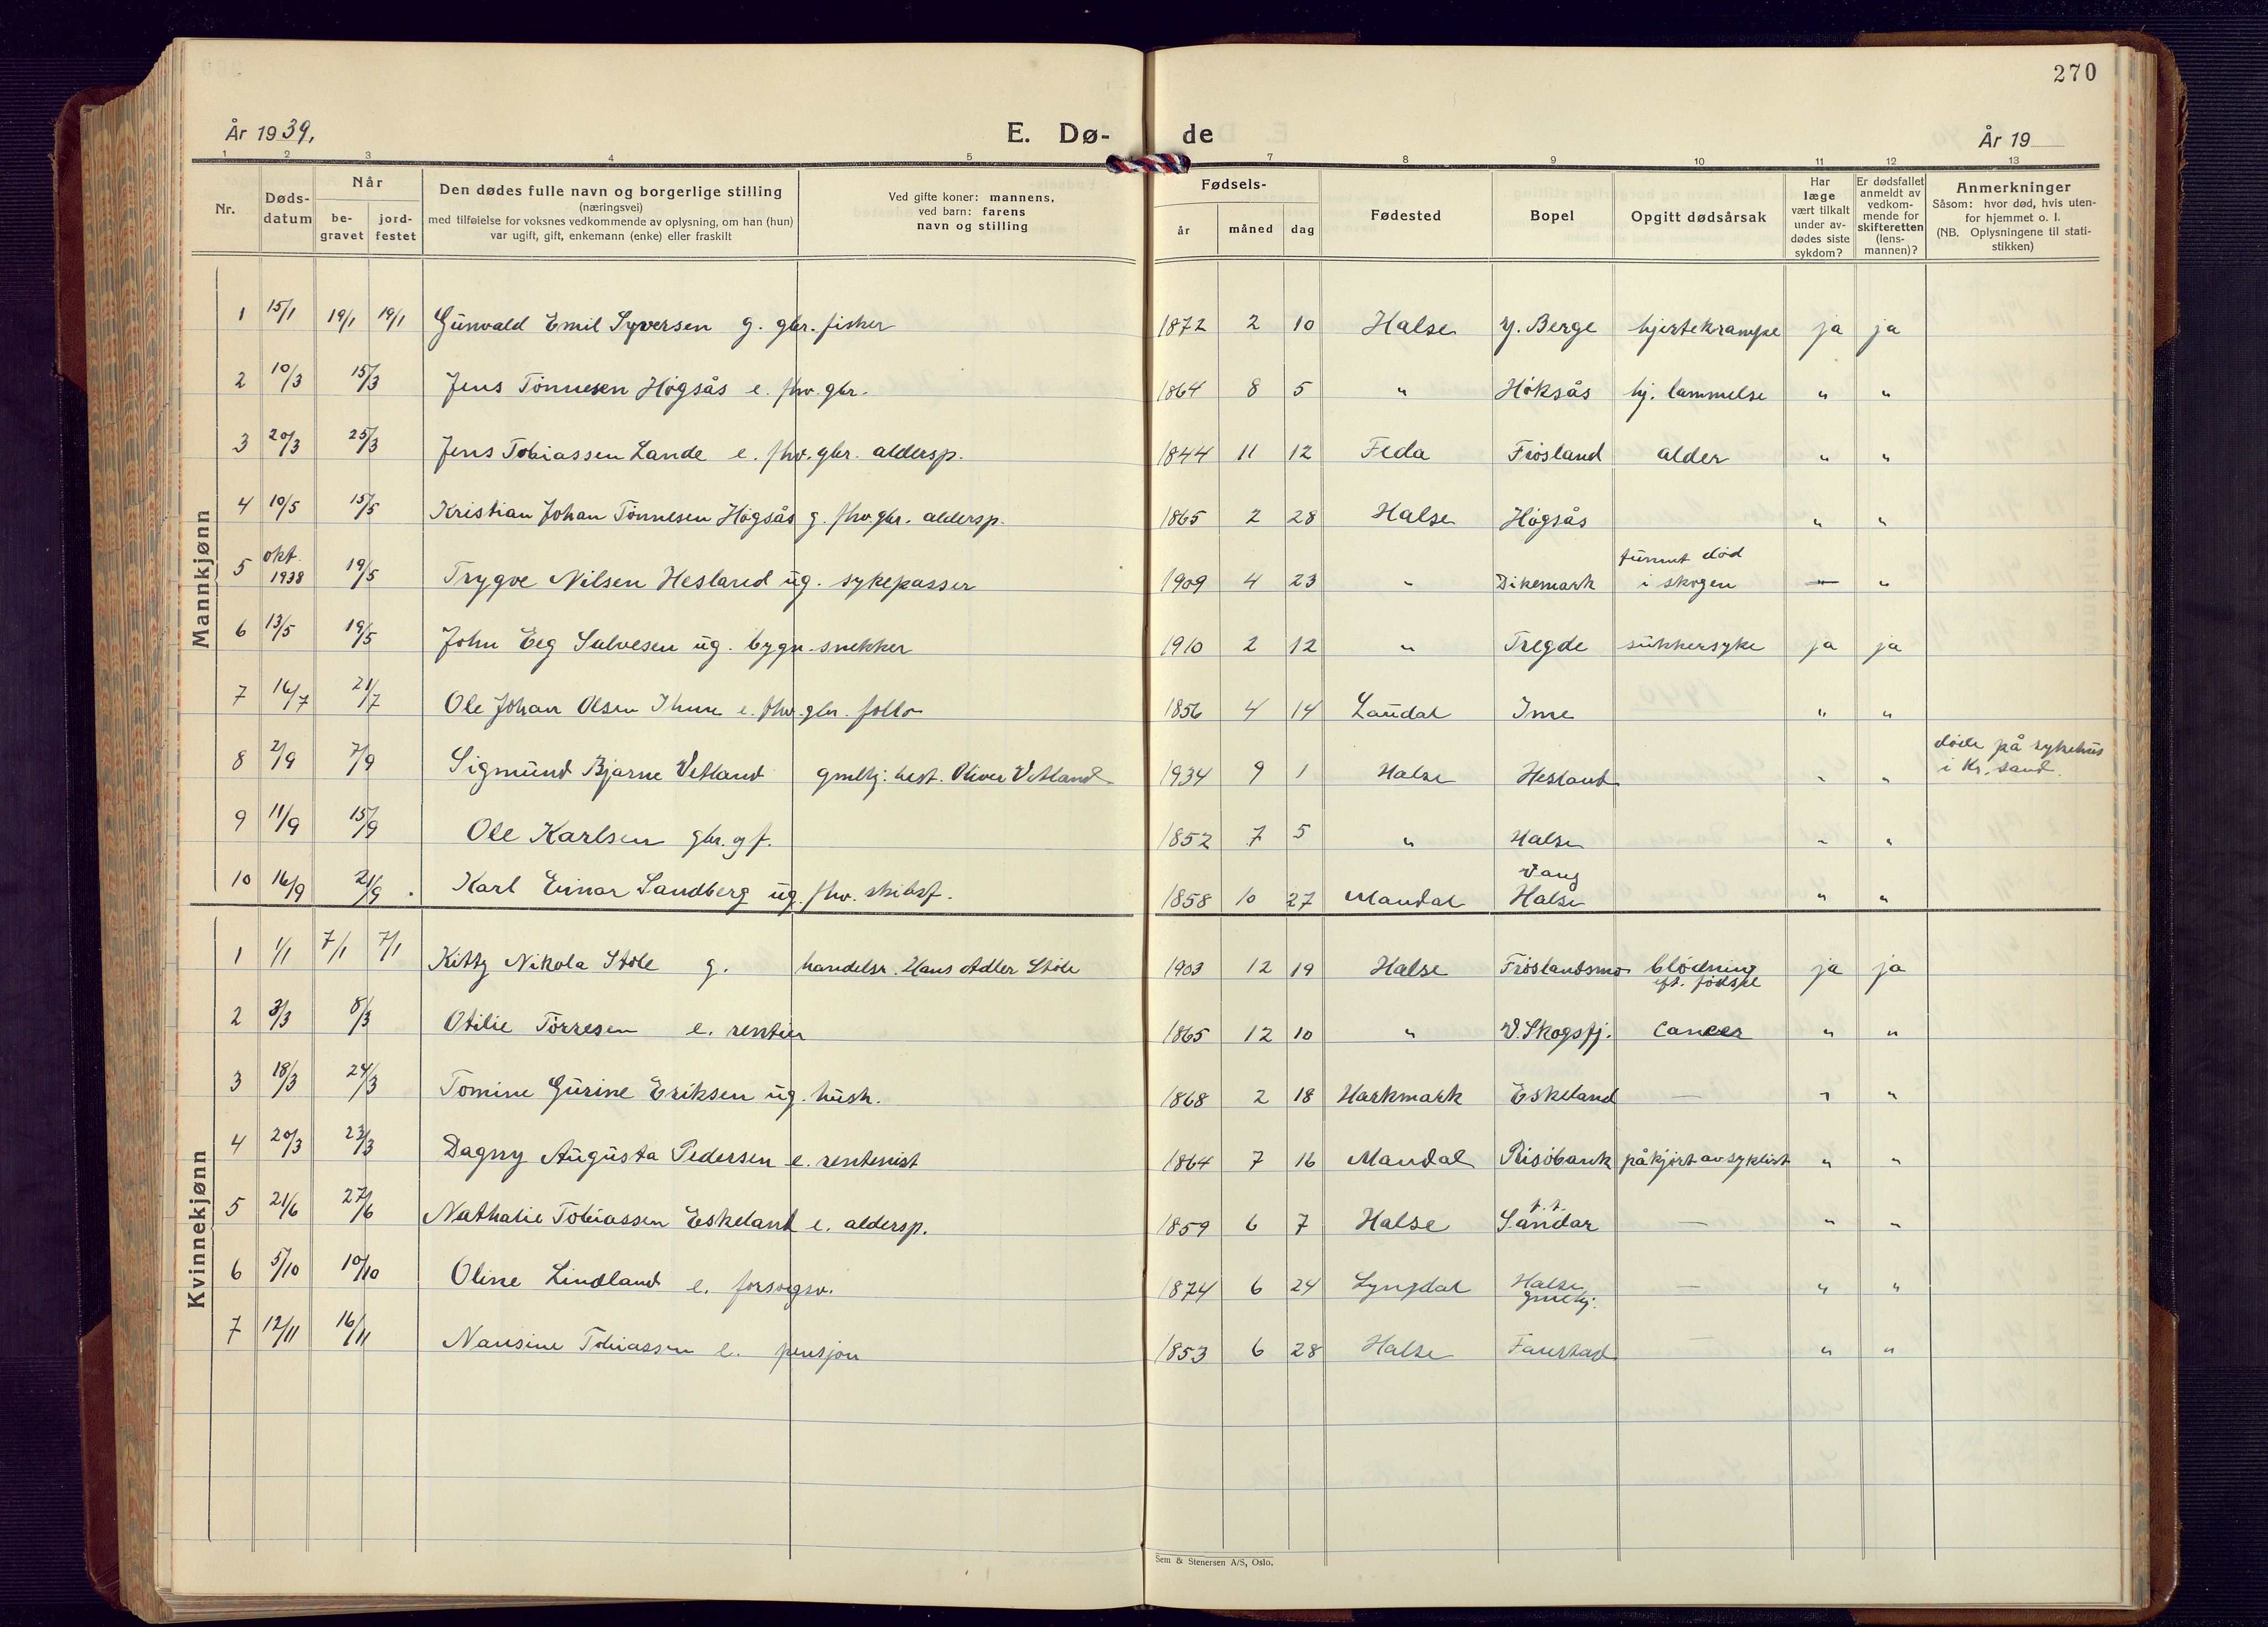 270
År 1939,
E. Dø-
de
År 19
1 2 3 4 5 7 8 9 10 11 12 13
Nr.
Døds-
datum
Når
be-
gravet
jord-
festet
Den dødes fulle navn og borgerlige stilling
(næringsvei)
med tilføielse for voksnes vedkommende av oplysning, om han (hun)
var ugift, gift, enkemann (enke) eller fraskilt
Ved gifte koner: mannens,
ved barn: farens
navn og stilling
Fødsels-
år
måned
dag
Fødested
Bopel
Opgitt dødsårsak
Har
læge
vært tilkalt
under av-
dødes siste
sykdom?
Er dødsfallet
anmeldt av
vedkom-
mende for
skifteretten
(lens-
mannen)?
Anmerkninger
Såsom: hvor død, hvis uten-
for hjemmet o. l.
(NB. Oplysningene til stati-
stikken)
Mannkjønn
1 15/1 19/1 19/1 Gunvald Emil Syversen g. gbr. fisker 1872 2 10 Halse y. Berge hjertekrampe ja ja
2 10/3 15/3 Jens Tønnesen Høgsås e. fhv. gbr. 1864 8 5 " Høksås hj. lammelse " "
3 20/3 25/3 Jens Tobiassen Lande e. fhv. gbr. aldersp. 1844 11 12 Feda Frøsland alder " "
4 10/5 15/5 Kristian Johan Tønnesen Høgsås g. fhv. gbr. aldersp. 1865 2 28 Halse Høgsås " "
5 okt. 1938 19/5 Trygve Nilsen Hesland ug. sykepasser 1909 4 23 " Dikemark funnet død i skogen — "
6 13/5 19/5 John Eeg Salvesen ug. bygn. snekker 1910 2 12 " Tregde sukkersyke ja ja
7 16/7 21/7 Ole Johan Olsen Ihme e. fhv. gbr. 1856 4 14 Laudal Ime " "
8 2/9 7/9 Sigmund Bjarne Vetland gmlhj. best. Oliver Vetland 1934 9 1 Halse Hesland " " døde på sykehus
i Kr. sand.
9 11/9 15/9 Ole Karlsen gbr. g f. 1852 7 5 " Halse " "
10 16/9 21/9 Karl Einar Sandberg ug. fhv. skibsf. 1858 10 27 Mandal Vang Halse " "
Kvinnekjønn
1 1/1 7/1 7/1 Kitty Nikola Støle g. handelsr. Hans Adler Støle 1903 12 19 Halse Frøslandsmo blødning
eft. fødsel ja ja
2 3/3 8/3 Otilie Tørresen e. rentier 1865 12 10 " V. Skogsfj. Cancer " "
3 18/3 24/3 Tomine Gurine Eriksen ug. hush. 1868 2 18 Harkmark Eskeland — " "
4 20/3 23/3 Dagny Augusta Pedersen e. rentenist 1864 7 16 Mandal Risøbank påkjørt av syklist " "
5 21/6 27/6 Nathalie Tobiassen Eskeland e. aldersp. 1859 6 7 Halse t. t.
Sandar — " "
6 5/10 10/10 Oline Lindland e. forsorgsv. 1874 6 24 Lyngdal Halse
gmlhj. — " "
7 12/11 16/11 Nansine Tobiassen e. pensjon 1853 6 28 Halse Farestad — " "
Sem & Stenersen A/S, Oslo.